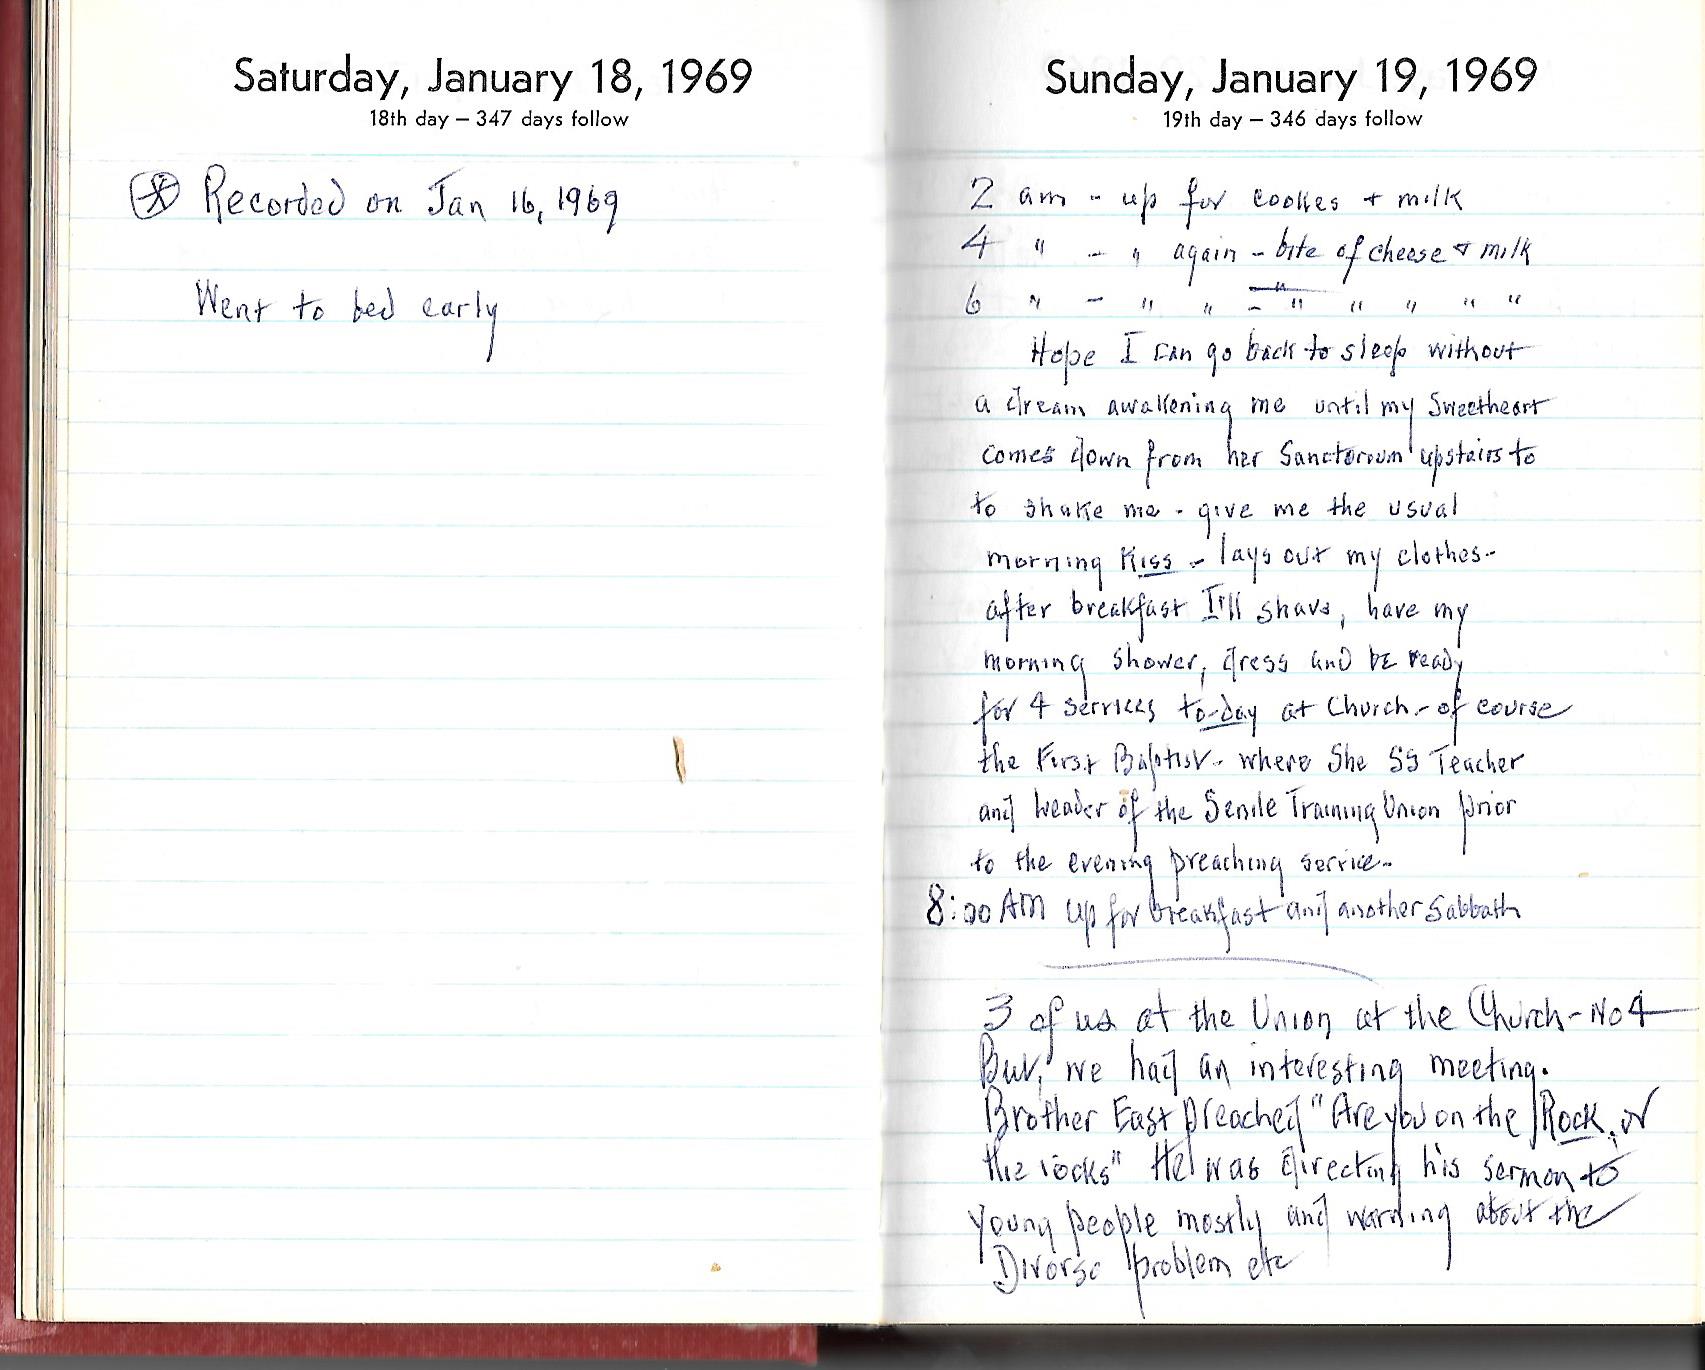 Saturday, January 18, 1969
18th day – 347 days follow
Recorded on Jan 16, 1969
Went to bed early
Sunday, January 19, 1969
19th day – 346 days follow
2 am - up for cookies + milk
4 " - " again - bite of cheese & milk
6 " - " " - " " " " "
Hope I can go back to sleep without
a dream awakening me until my Sweetheart
comes down from her Sanctoroum upstairs to
to shake me - give me the usual
morning Kiss - lays out my clothes -
after breakfast I'll shave, have my
morning shower, dress and be ready
for 4 services to-day at Church - of course
the First Baptist - where She SS Teacher
and Leader of the Senile Training Union prior
to the evening preaching service -
8:00 AM up for breakfast and another Sabbath
3 of us at the Union at the Church - No 4
But, we had an interesting meeting.
Brother East preached "Are you on the Rock, or
the rocks" He was directing his sermon to
young people mostly and warning about the
Divorse problem etc